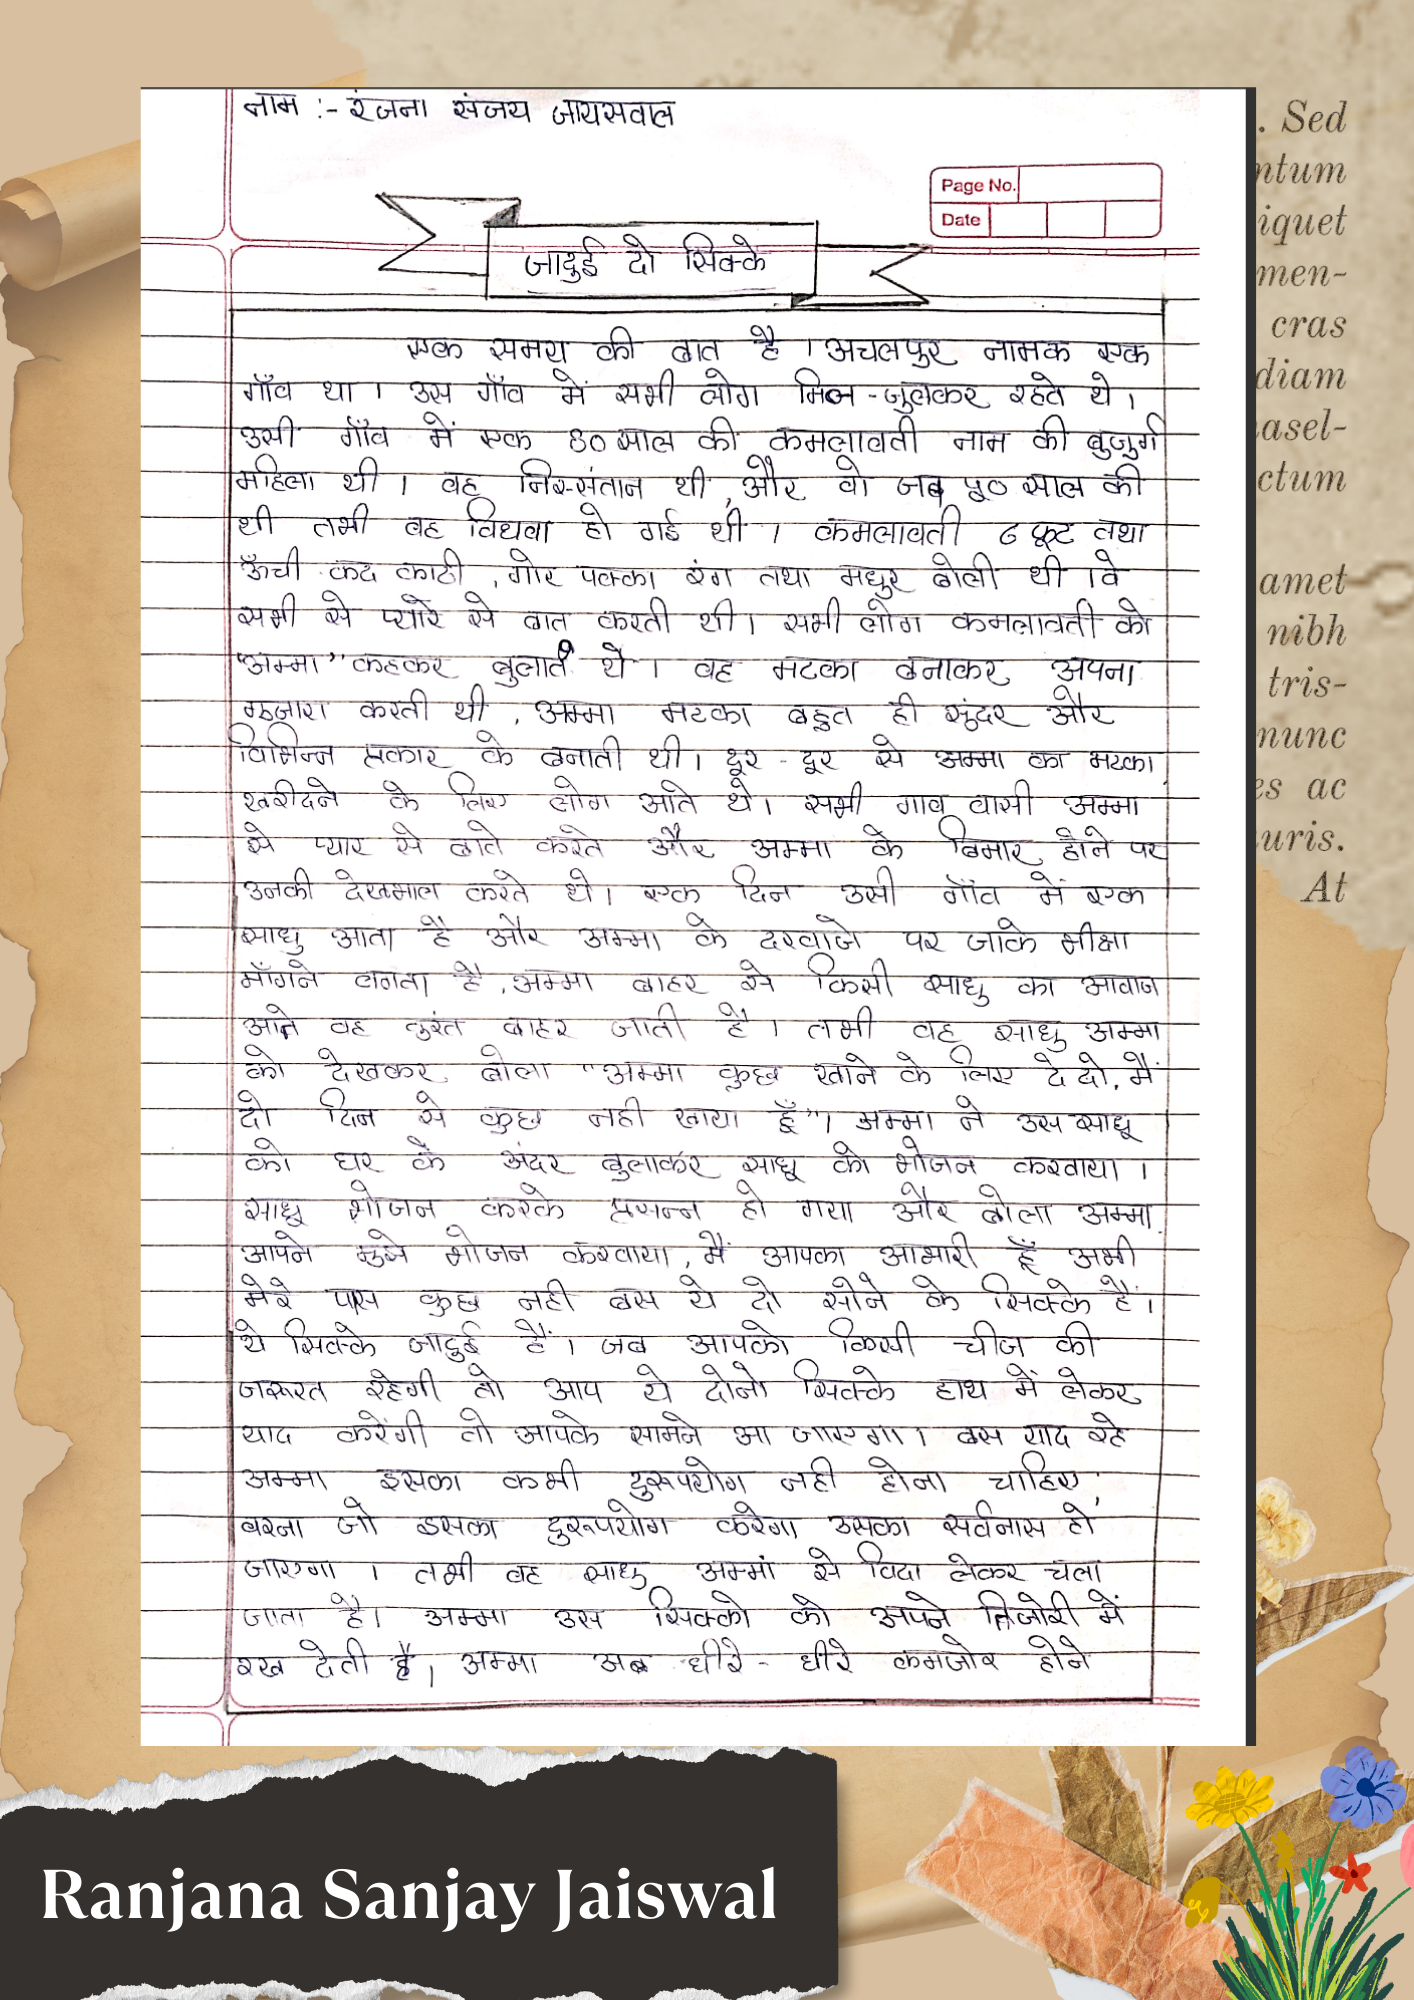 नाम :- रंजना संजय जायसवाल
Page No.
Date
जादुई दो सिक्के
एक समय की बात है । अचलपुर नामक एक
गाँव था । उस गाँव में सभी लोग मिल-जुलकर रहते थे ।
उसी गाँव में एक 80 साल की कमलावती नाम की बुजुर्ग
महिला थी । वह निर-संतान थी, और वो जब ५० साल की
थी तभी वह विधवा हो गई थी । कमलावती ६ फूट तथा
ऊँची कद काठी, गोर पक्का रंग तथा मधुर बोली थी । वे
सभी से प्यारे से बात करती थी। सभी लोग कमलावती को
"अम्मा" कहकर बुलाते थे । वह मटका बनाकर अपना
गुजारा करती थी, अम्मा मटका बहुत ही सुंदर और
विभिन्न प्रकार के बनाती थी। दूर - दूर से अम्मा का मटका
खरीदने के लिए लोग आते थे। सभी गाव वासी अम्मा
से प्यार से बाते करते और अम्मा के बिमार होने पर
उनकी देखभाल करते थे। एक दिन उसी गाँव में एक
साधु आता है और अम्मा के दरवाजे पर जाके भीक्षा
माँगने लगता है, अम्मा बाहर से किसी साधु का आवाज
आते वह तुरंत बाहर जाती है । तभी वह साधु अम्मा
को देखकर बोला "अम्मा कुछ खाने के लिए दे दो, मैं
दो दिन से कुछ नही खाया हूँ"। अम्मा ने उस साधू
को घर के अंदर बुलाकर साधू को भोजन करवाया ।
साधू भोजन करके प्रसन्न हो गया और बोला अम्मा
आपने मुझे भोजन करवाया, मैं आपका आभारी हूँ अभी
मेरे पास कुछ नही बस ये दो सोने के सिक्के हैं।
ये सिक्के जादुई हैं । जब आपको किसी चीज की
जरूरत रहेगी तो आप ये दोनो सिक्के हाथ में लेकर
याद करेंगी तो आपके सामने आ जाएगा। बस याद रहे
अम्मा इसका कभी दुरूपयोग नही होना चाहिए,
वरना जो इसका दुरूपयोग करेगा उसका सर्वनास हो
जाएगा । तभी वह साधु अम्मां से विदा लेकर चला
जाता है। अम्मा उस सिक्को को अपने तिजोरी में
रख देती है, अम्मा अब धीरे - धीरे कमजोर होने
. Sed
ntum
iquet
men-
cras
diam
asel-
ctum
amet
nibh
tris-
nunc
es ac
uris.
At
Ranjana Sanjay Jaiswal